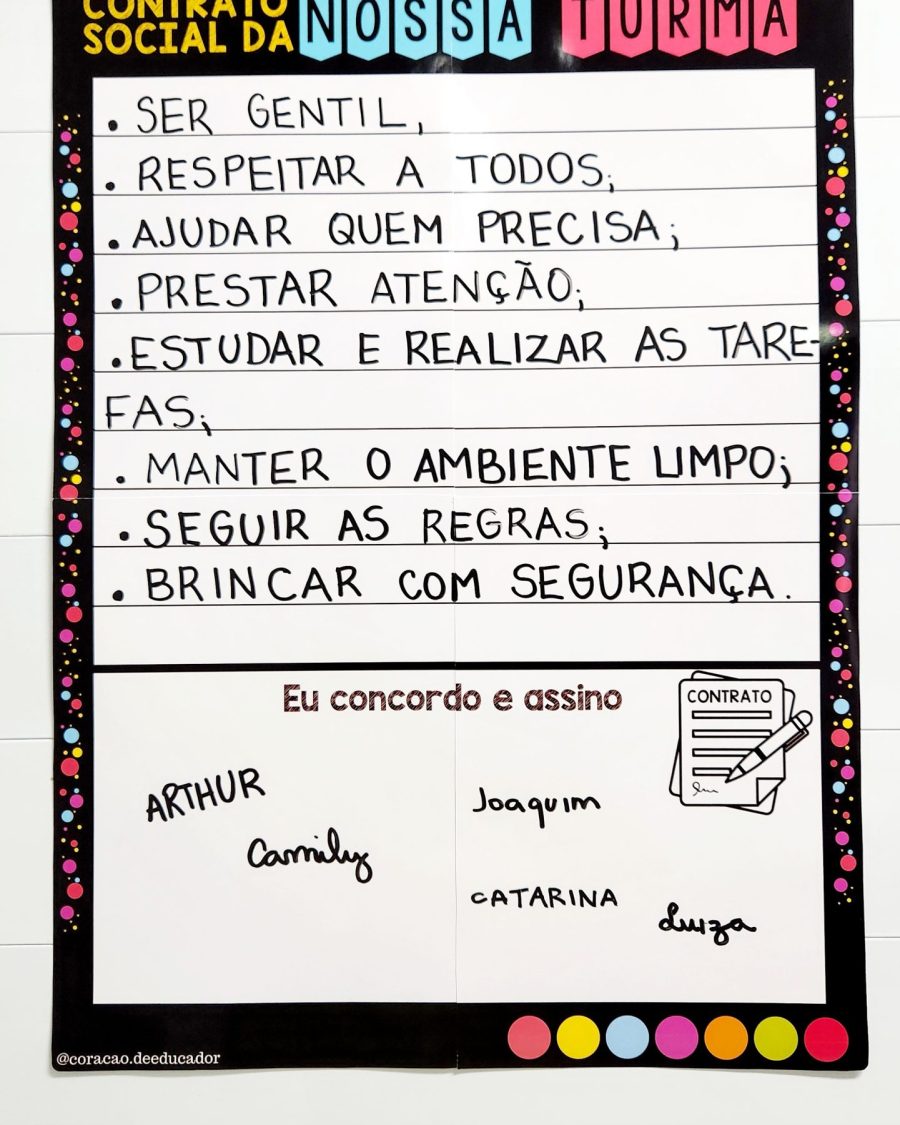 CONTRATO
SOCIAL DA NOSSA TURMA
. SER GENTIL,
. RESPEITAR A TODOS;
. AJUDAR QUEM PRECISA;
. PRESTAR ATENÇÃO;
. ESTUDAR E REALIZAR AS TARE-
FAS;
. MANTER O AMBIENTE LIMPO;
. SEGUIR AS REGRAS;
. BRINCAR COM SEGURANÇA.
Eu concordo e assino
CONTRATO
ARTHUR
Joaquim
Camily
CATARINA
Luiza
@coracao.deeducador